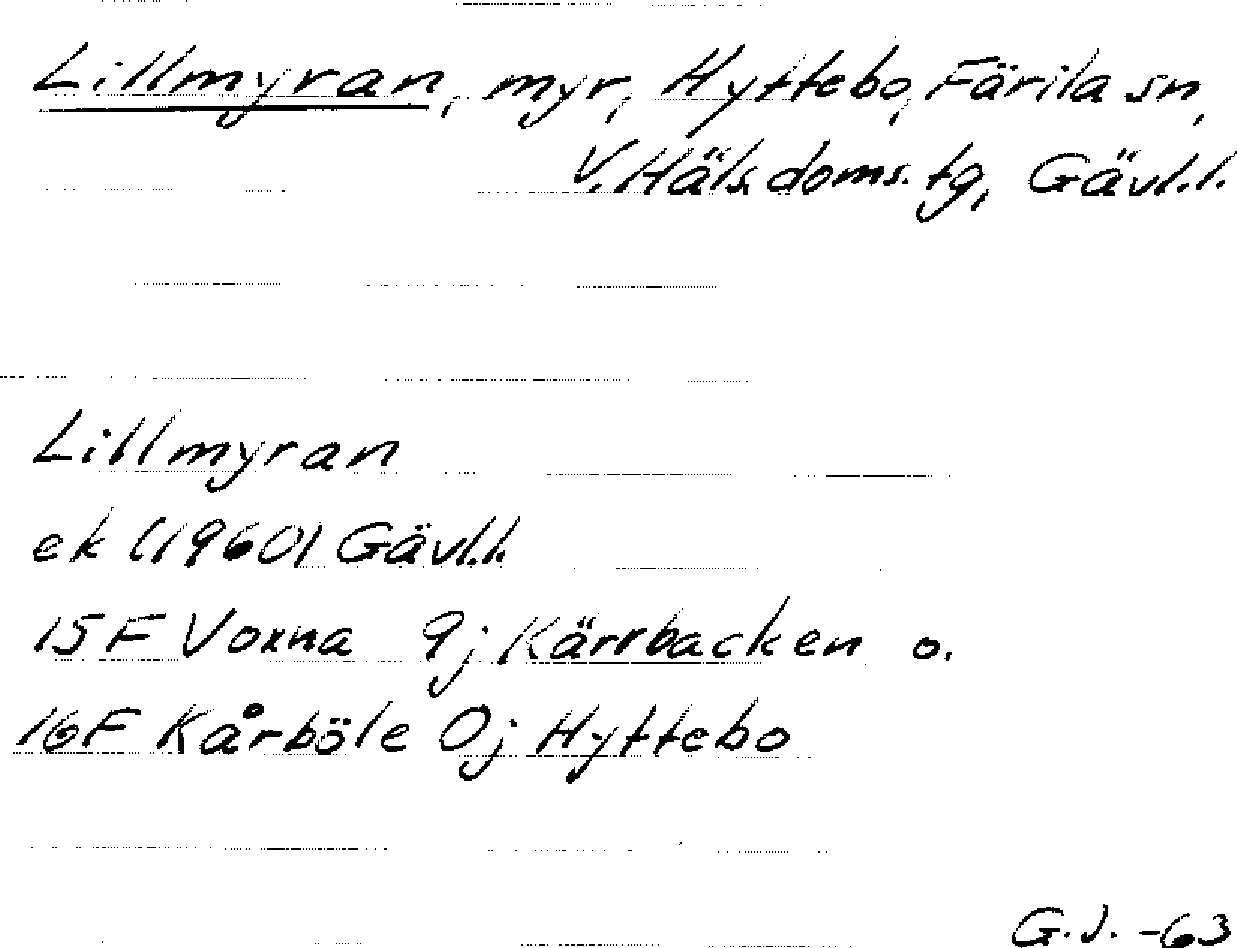 Lillmyran, myr, Hyttebo, Färila sn,
V. Häls. doms. tg, Gävl.l.
Lillmyran
ek (1960) Gävl.l.
15F Voxna 9j Kärrbacken o.
16F Kårböle 0j Hyttebo
G.J. -63